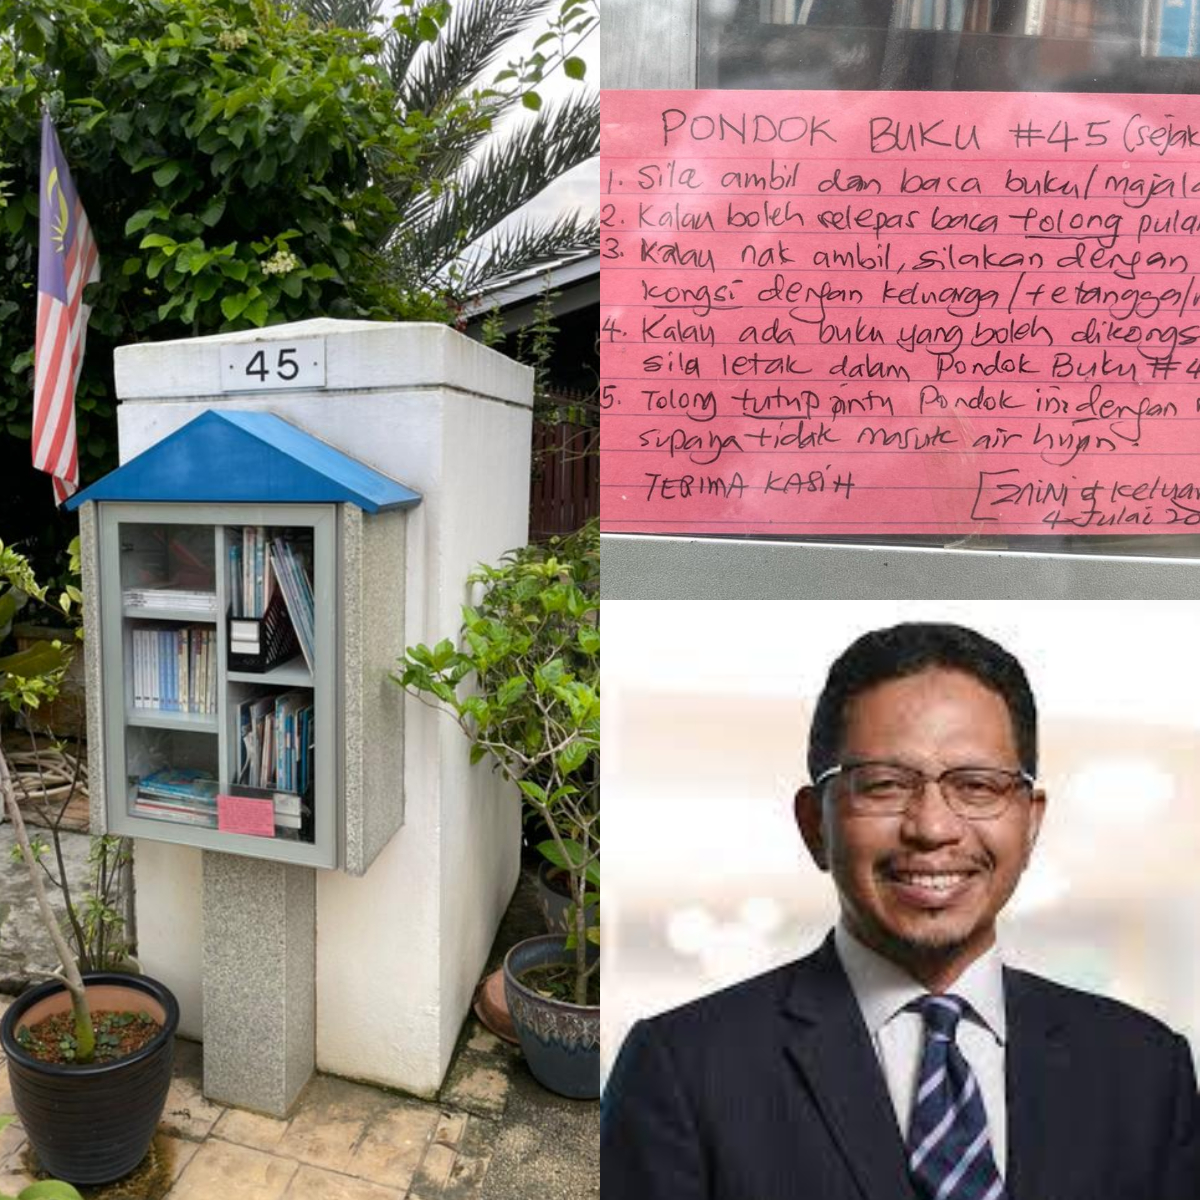 45
PONDOK BUKU #45 (sejak
1. Sila ambil dan baca buku/majala
2. Kalau boleh selepas baca tolong pula
3. Kalau nak ambil, silakan dengan
kongsi dengan keluarga/tetangga/
4. Kalau ada buku yang boleh dikongs
sila letak dalam Pondok Buku #4
5. Tolong tutup pintu Pondok ini dengan
supaya tidak masuk air hujan.
TERIMA KASIH
[Zaini & Keluar
4 Julai 20